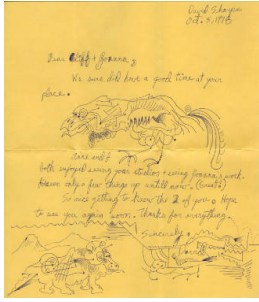 Oct. 5, 1978
Dear Cliff & Joanna,
We sure did have a good time at your
place.
Anne and I
both enjoyed seeing your studios & seeing Joanna's work.
only a few things up untill now.
So nice getting to know the 2 of you. Hope
to see you again soon. Thanks for everything.
Sincerely,